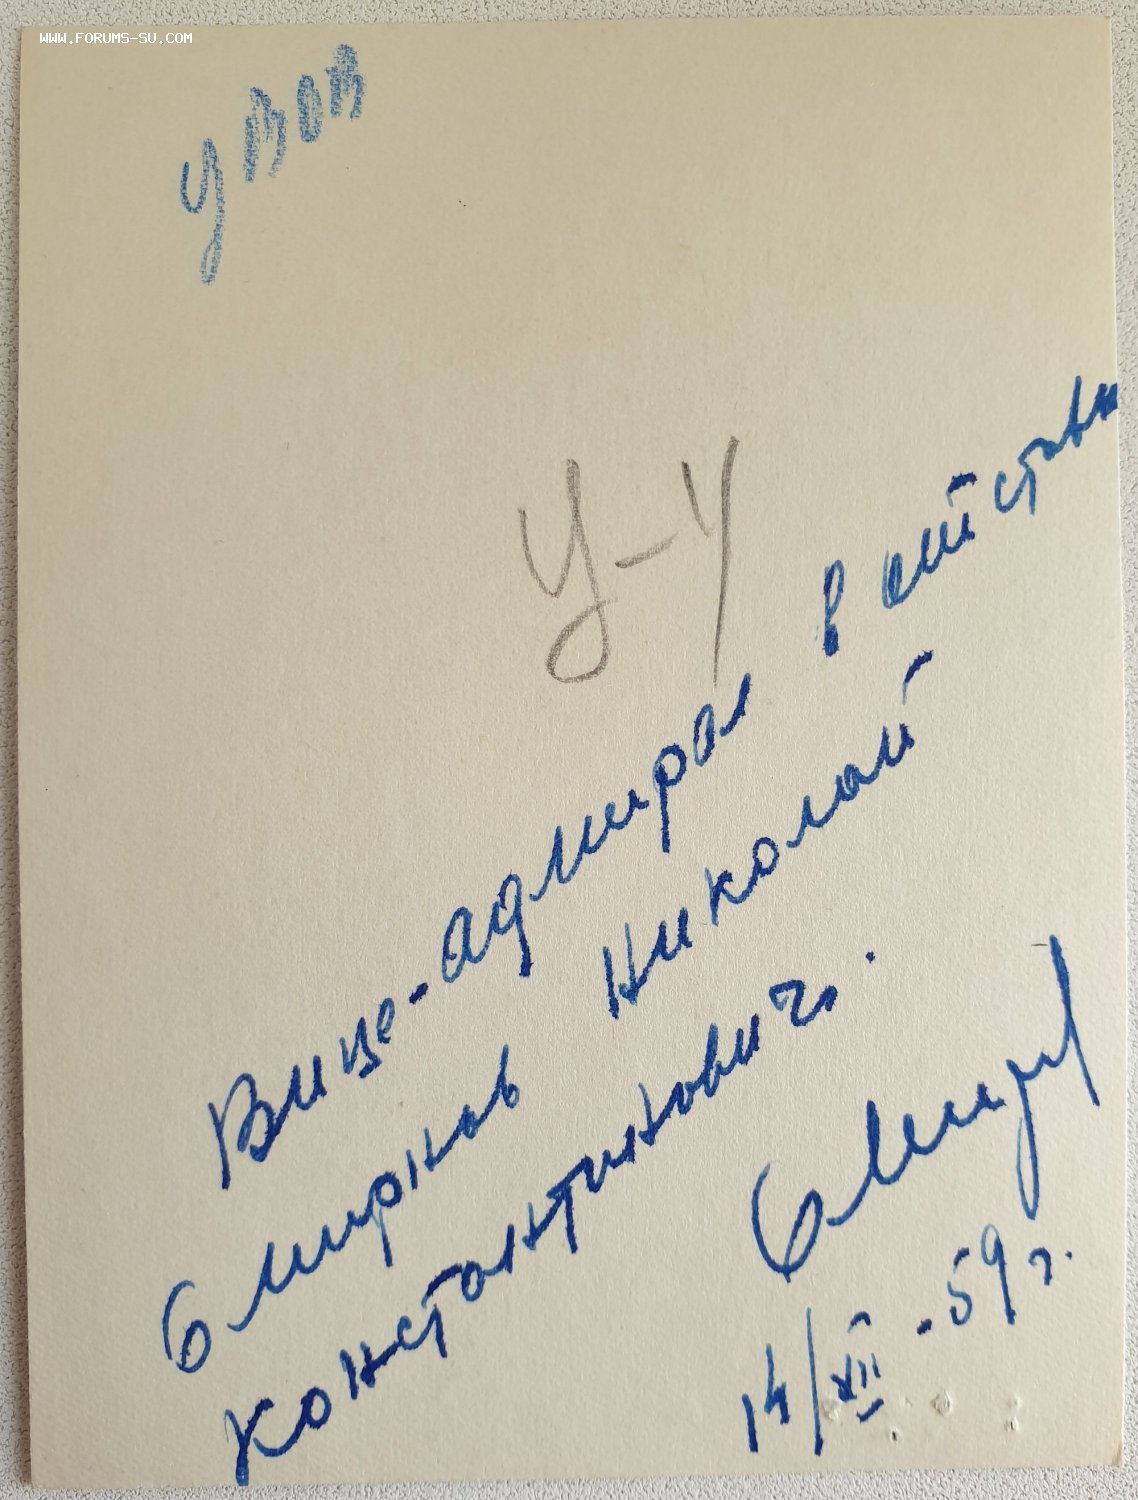 WWW.FORUMS-SU.COM
у-4
Вице-адмирал в отставк
Смирнов Николай
Константинович.
14/XII-59 г.